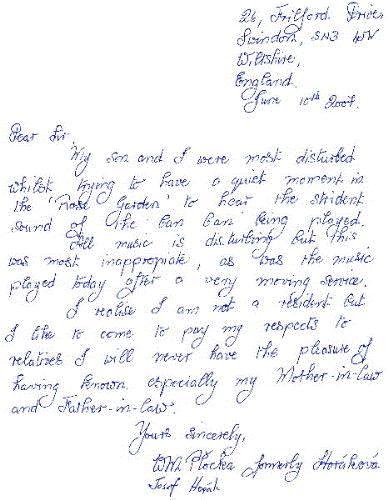 26, Frilford Drive,
Swindon, SN3
Wiltshire,
England.
June 10th 2007.
Dear Sir,
My son and I were most disturbed
whilst trying to have a quiet moment in
the 'Rose Garden' to hear the strident
sound of the Can Can being played.
All music is disturbing but this
was most inappropiate, as was the music
played today after a very moving service.
I realise I am not a resident but
I like to come to pay my respects to
relatives I will never have the pleasure of
having known especially my Mother-in-law
and Father-in-law.
Yours Sincerely,
formerly Horáková
Josef Horák